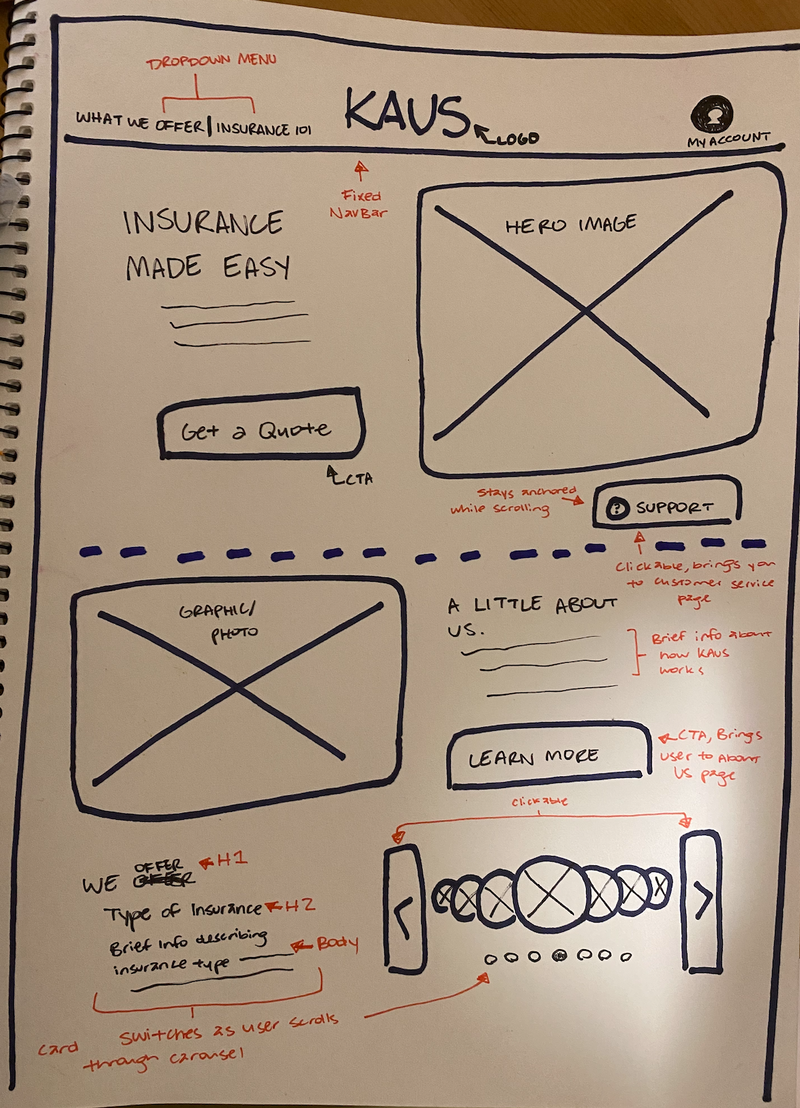 DROPDOWN MENU
WHAT WE OFFER | INSURANCE 101
KAUS
LOGO
MY ACCOUNT
Fixed
NavBar
INSURANCE
MADE EASY
HERO IMAGE
Get a Quote
CTA
Stays anchored
while scrolling
? SUPPORT
Clickable, brings you
to customer service
page
GRAPHIC/
PHOTO
A LITTLE ABOUT
US.
Brief info about
how KAUS
works
LEARN MORE
CTA, Brings
user to About
US page
clickable
WE OFFER
H1
Type of Insurance
H2
Brief Info describing
insurance type
Body
<
>
Card switches as user scrolls
through carousel